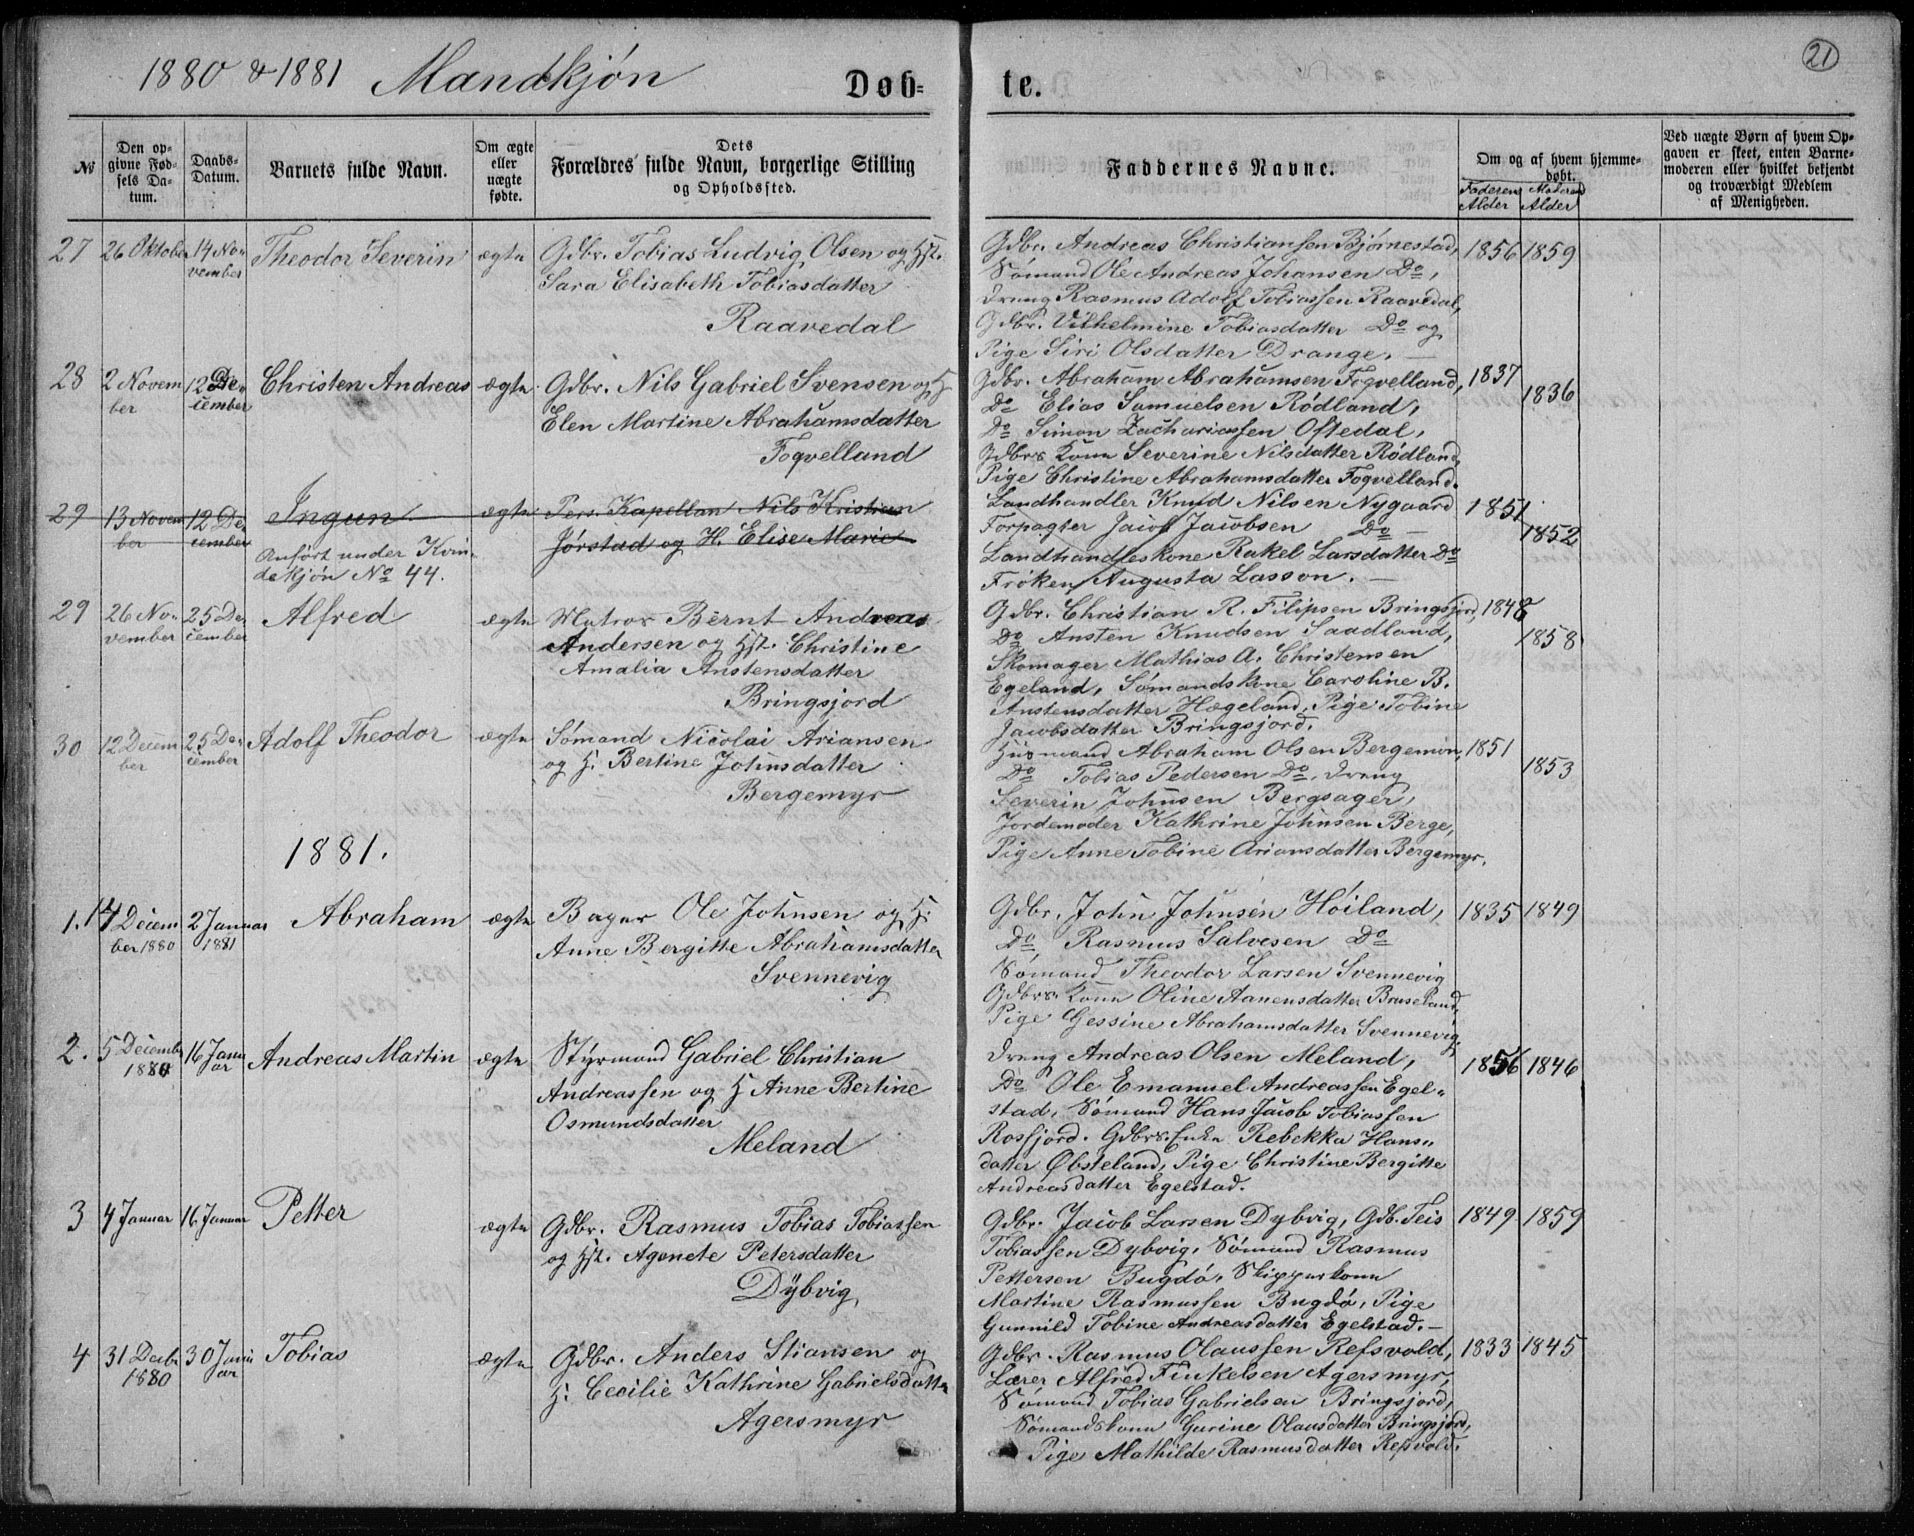 1880 & 1881 Mandkjøn Døb=
te. 21
№
Den op-
givne Fød-
sels Da-
tum.
Daabs-
Datum.
Barnets fulde Navn.
Om ægte
eller
uægte
fødte.
Dets
Forældres fulde Navn, borgerlige Stilling
og Opholdssted.
Faddernes Navne.
Om og af hvem hjemme-
døbt.
Faderens
Alder
Moderens
Alder
Ved uægte Børn af hvem Op-
gaven er skeet, enten Barne-
moderen eller hvilket bekjendt
og troværdigt Medlem
af Menigheden.
27
26 Oktober
14 No-
vember
Theodor Severin
ægte
Gdbr. Tobias Ludvig Olsen og Hst.
Sara Elisabeth Tobiasdatter
Raavedal
Gdbr. Andreas Christiansen Bjørnestad,
Sømand Ole Andreas Johansen Do,
Dreng Rasmus Adolf Tobiassen Raavedal,
Gdbr. Vilhelmine Tobiasdatter Do og
Pige Siri Olsdatter Drange. —
1856
1859
28
2 Novem
ber
12 De-
cember
Christen Andreas
ægte
Gdbr. Nils Gabriel Svensen og H.
Elen Martine Abrahamsdatter
Fogvelland
Gdbr. Abraham Abrahamsen Fogvelland,
Do Elias Samuelsen Rødland,
Do Simon Zachariassen Oftedal,
Gdbrs Kone Severine Nilsdatter Rødland,
Pige Christine Abrahamsdatter Fogvelland.
1837
1836
29
13 Novem
ber
12 De-
cember
Ingun
Anført under Kvin-
dekjøn No 44.
ægte
Pers. Kapellan Nils Kristian
Jørstad og H. Elise Marie
Landhandler Knud Nilsen Nygaard
Forpagter Jacob Jacobsen Do —
Landhandleskone Rakel Larsdatter Do
Frøken Augusta Lasson. —
1851
1852
29
26 No-
vember
25 De-
cember
Alfred
ægte
Matros Bernt Andreas
Andersen og Hst. Christine
Amalia Anstensdatter
Bringsjord
Gdbr. Christian R. Filipsen Bringsjord,
Do Ansten Knudsen Saadland,
Skomager Mathias A. Christensen
Egeland, Sømandskone Caroline B.
Anstensdatter Hægeland, Pige Tobine
Jacobsdatter Bringsjord.
1848
1858
30
12 Decem
ber
25 De-
cember
Adolf Theodor
ægte
Sømand Nicolai Ariansen
og H. Bertine Johnsdatter
Bergemyr
Husmand Abraham Olsen Bergemon,
Do Tobias Pedersen Do, Dreng
Severin Johnsen Bergsager,
Jordemoder Kathrine Johnsen Berge,
Pige Anne Tobine Ariansdatter Bergemyr.
1851
1853
1881.
1.
14 Decem
ber 1880
2 Januar
1881
Abraham
ægte
Bager Ole Johnsen og H.
Anne Bergitte Abrahamsdatter
Svennevig
Gdbr. John Johnsen Høiland,
Do Rasmus Salvesen Do
Sømand Theodor Larsen Svennevig
Gdbrs. Kone Oline Aanensdatter Bruseland,
Pige Gessine Abrahamsdatter Svennevig.
1835
1849
2.
5 December
1880
16 Janu
ar
Andreas Martin
ægte
Styrmand Gabriel Christian
Andreassen og H Anne Bertine
Osmundsdatter
Meland
Dreng Andreas Olsen Meland,
Do Ole Emanuel Andreassen Egel-
stad, Sømand Hans Jacob Tobiassen
Rosfjord. Gdbrs. Enke Rebekka Hans-
datter Øbsteland, Pige Christine Bergitte
Andreasdatter Egelstad.
1856
1846
3
4 Januar
16 Januar
Petter
ægte
Gdbr. Rasmus Tobias Tobiassen
og Hst. Agnete Petersdatter
Dybvig
Gdbr. Jacob Larsen Dybvig, Gdb. Teis
Tobiassen Dybvig, Sømand Rasmus
Pettersen Bugdø, Skipperkone
Martine Rasmussen Bugdø, Pige
Gunnild Tobine Andreasdatter Egelstad. —
1849
1859
4
31 Decbr
1880
30 Janu
ar
Tobias
ægte
Gdbr. Anders Stiansen og
H. Cecilie Kathrine Gabrielsdatter
Agersmyr
Gdbr. Rasmus Olaussen Refsvold,
Lærer Alfred Finkelsen Agersmyr,
Sømand Tobias Gabrielsen Bringsjord,
Sømandskone Gurine Olausdatter Bringsjord,
Pige Mathilde Rasmusdatter Refsvold.
1833
1845